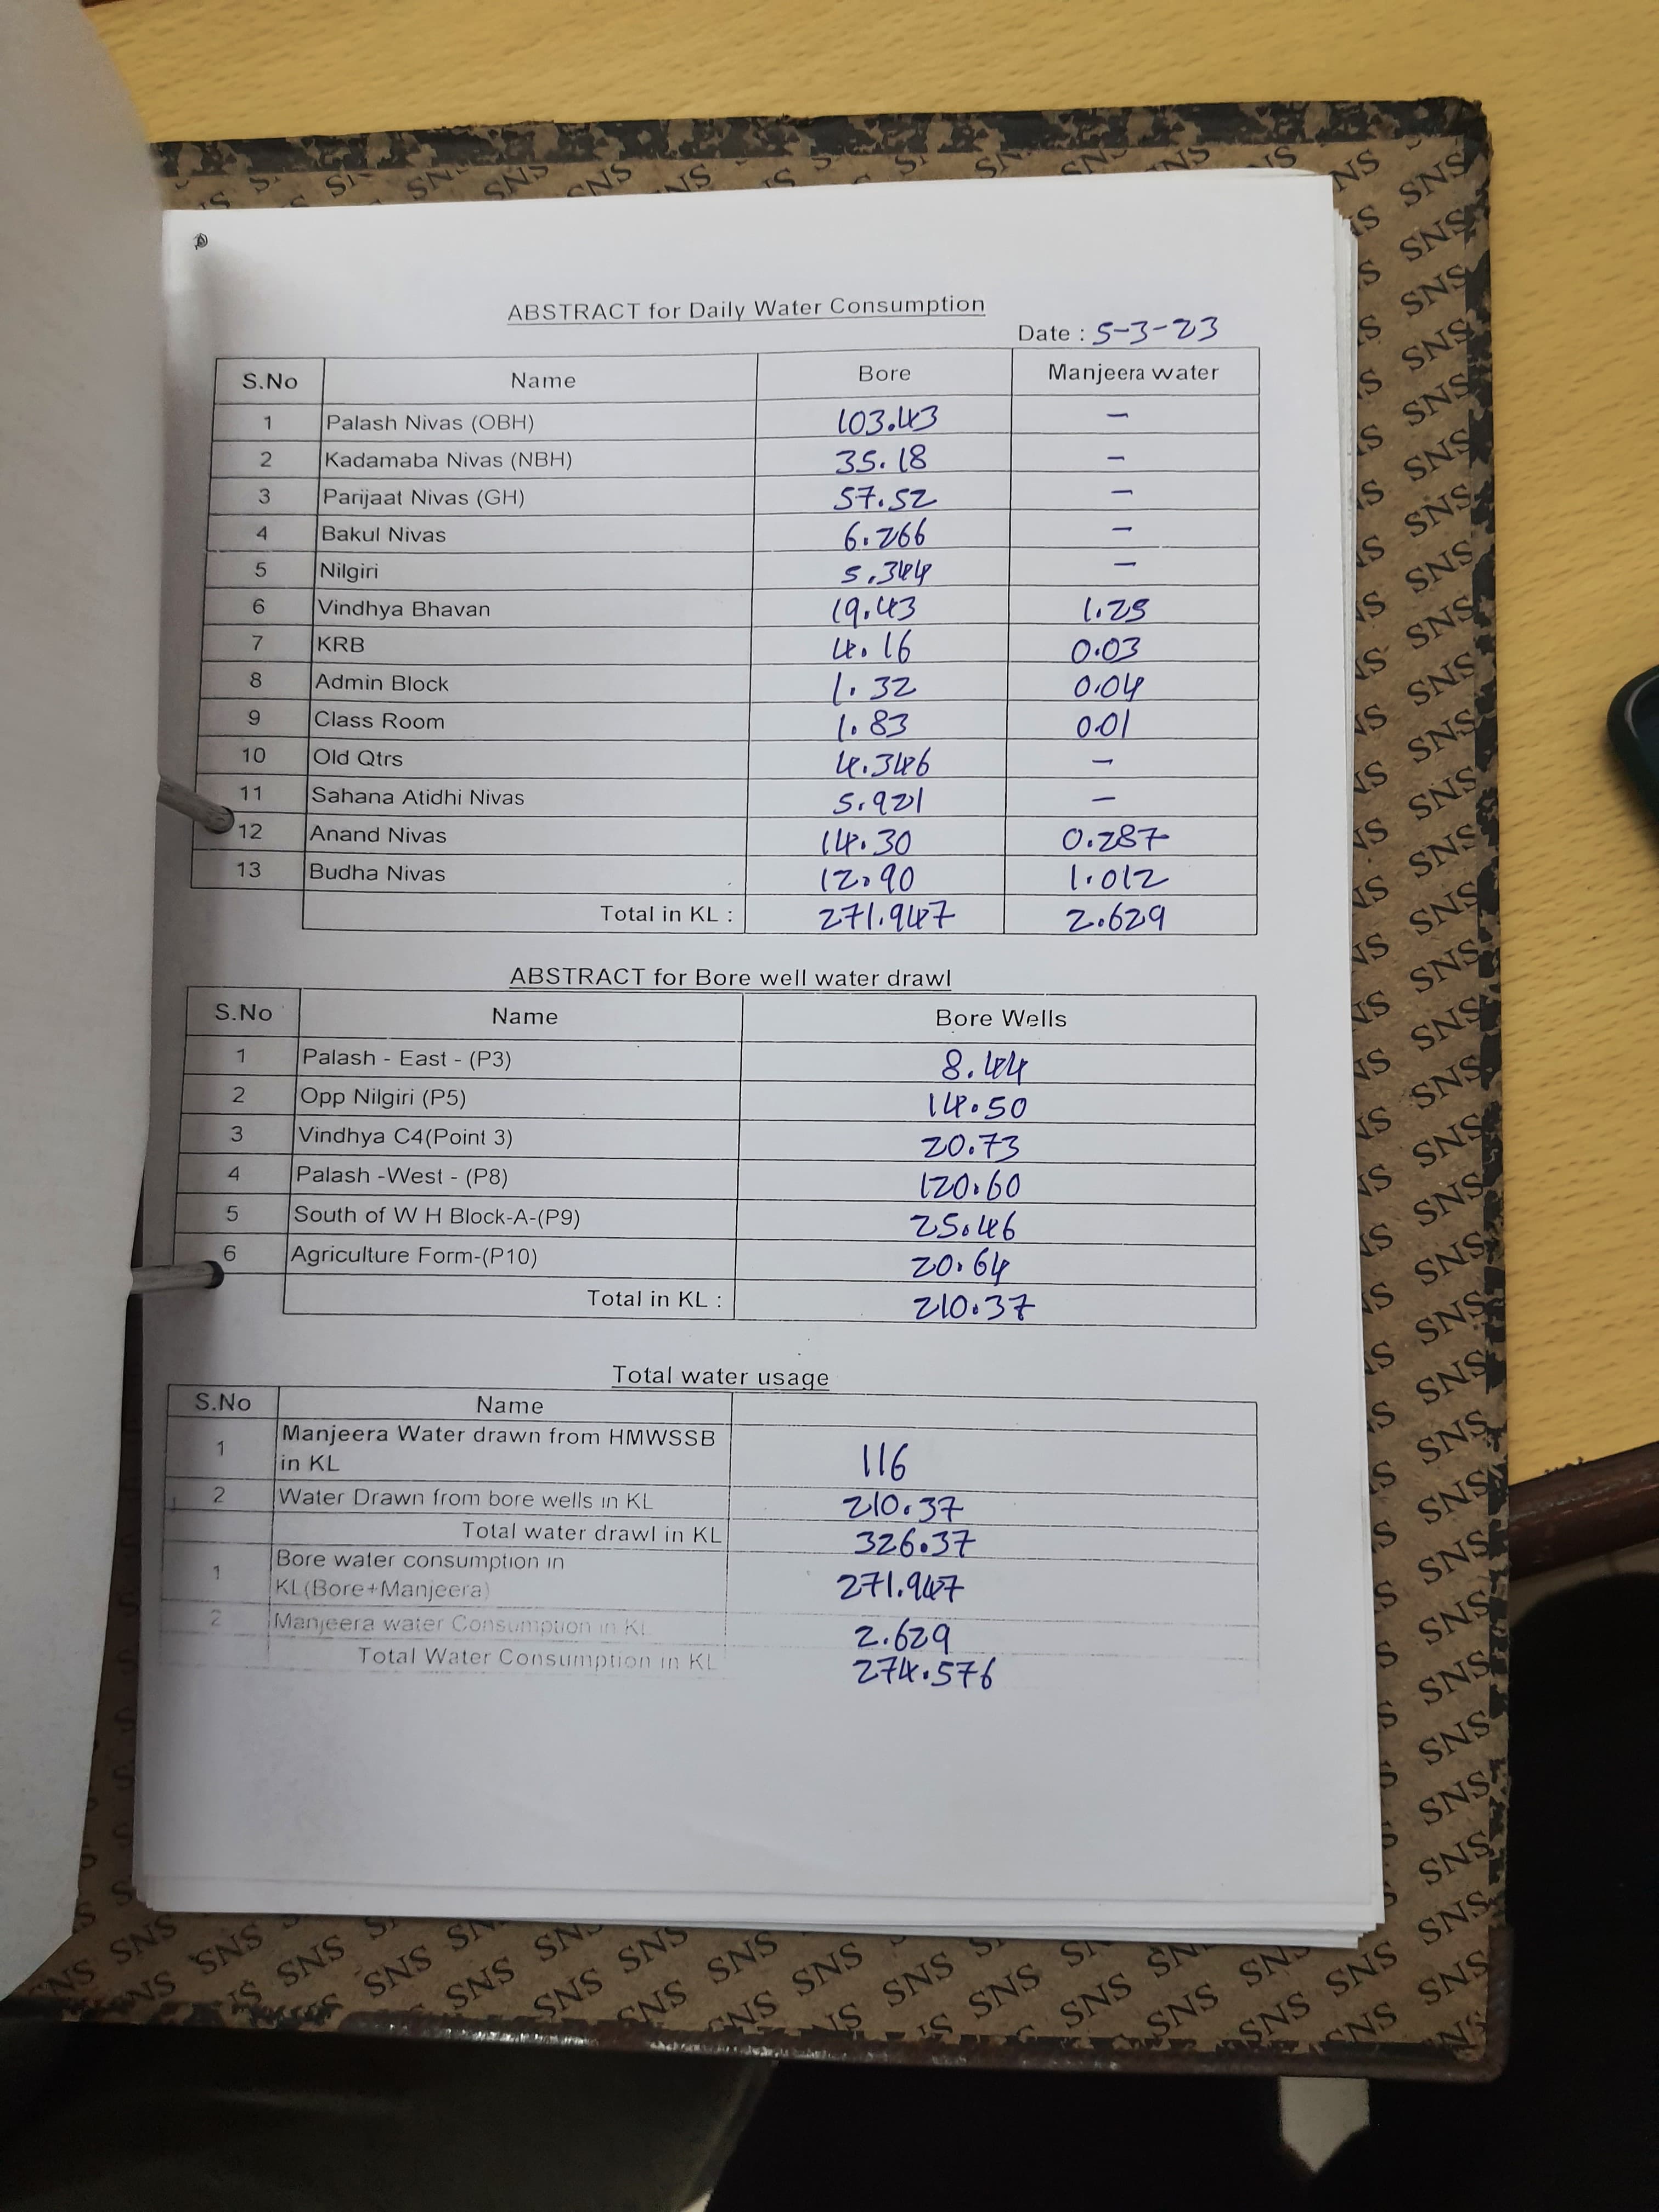 ABSTRACT for Daily Water Consumption
Date : 5-3-23
S.No Name Bore Manjeera water
1 Palash Nivas (OBH) 103.43 –
2 Kadamaba Nivas (NBH) 35.18 –
3 Parijaat Nivas (GH) 57.52 –
4 Bakul Nivas 6.266 –
5 Nilgiri 5.344 –
6 Vindhya Bhavan 19.43 1.25
7 KRB 4.16 0.03
8 Admin Block 1.32 0.04
9 Class Room 1.83 0.01
10 Old Qtrs 4.346 –
11 Sahana Atidhi Nivas 5.921 –
12 Anand Nivas 14.30 0.287
13 Budha Nivas 12.90 1.012
Total in KL : 271.947 2.629
ABSTRACT for Bore well water drawl
S.No Name Bore Wells
1 Palash - East - (P3) 8.44
2 Opp Nilgiri (P5) 14.50
3 Vindhya C4(Point 3) 20.73
4 Palash -West - (P8) 120.60
5 South of W H Block-A-(P9) 25.46
6 Agriculture Form-(P10) 20.64
Total in KL : 210.37
Total water usage
S.No Name
1 Manjeera Water drawn from HMWSSB
in KL 116
2 Water Drawn from bore wells in KL 210.37
Total water drawl in KL 326.37
1 Bore water consumption in
KL(Bore+Manjeera) 271.947
2 Manjeera water Consumption in KL 2.629
Total Water Consumption in KL 274.576
SNS